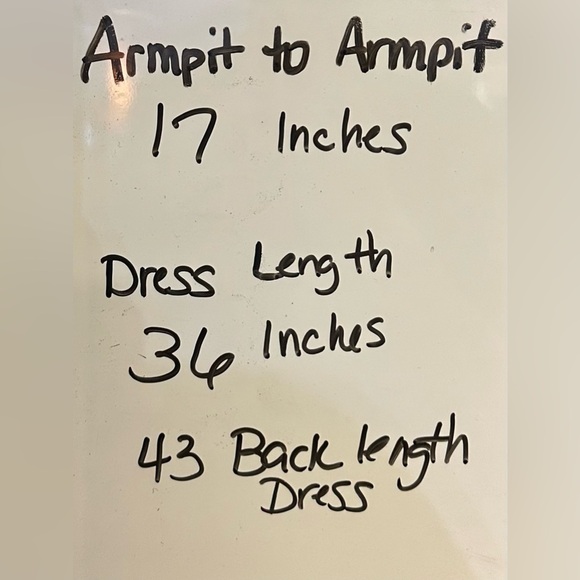 Armpit to Armpit
17 Inches
Dress Length
36 Inches
43 Back length
Dress